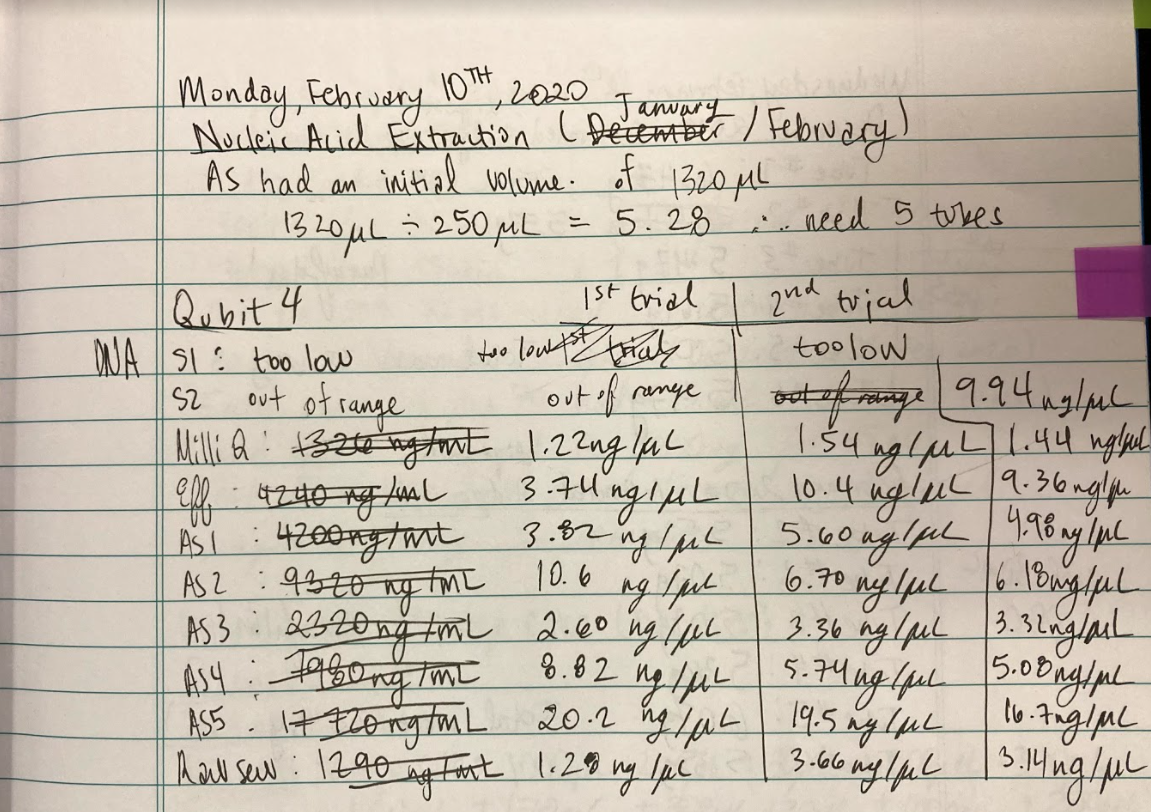 Monday, February 10TH, 2020
January
Nucleic Acid Extraction (December / February)
AS had an initial volume. of 1320 µL
1320 µL ÷ 250 µL = 5.28 ∴ need 5 tubes
Qubit 4 1st trial 2nd trial
DNA S1: too low too low 1st trial too low
S2 out of range out of range out of range 9.94 ng/µL
Milli Q: 1320 ng/mL 1.22 ng/µL 1.54 ng/µL 1.44 ng/µL
Eff: 4240 ng/mL 3.74 ng/µL 10.4 ng/µL 9.36 ng/µ
AS1: 4200 ng/mL 3.82 ng/µL 5.60 ng/µL 4.98 ng/µL
AS2: 9320 ng/mL 10.6 ng/µL 6.70 ng/µL 6.18 ng/µL
AS3: 2320 ng/mL 2.60 ng/µL 3.36 ng/µL 3.32 ng/µL
AS4: 7980 ng/mL 8.82 ng/µL 5.74 ng/µL 5.08 ng/µL
AS5. 17 720 ng/mL 20.2 ng/µL 19.5 ng/µL 16.7 ng/µL
Raw sew: 1290 ng/mL 1.28 ng/µL 3.66 ng/µL 3.14 ng/µL